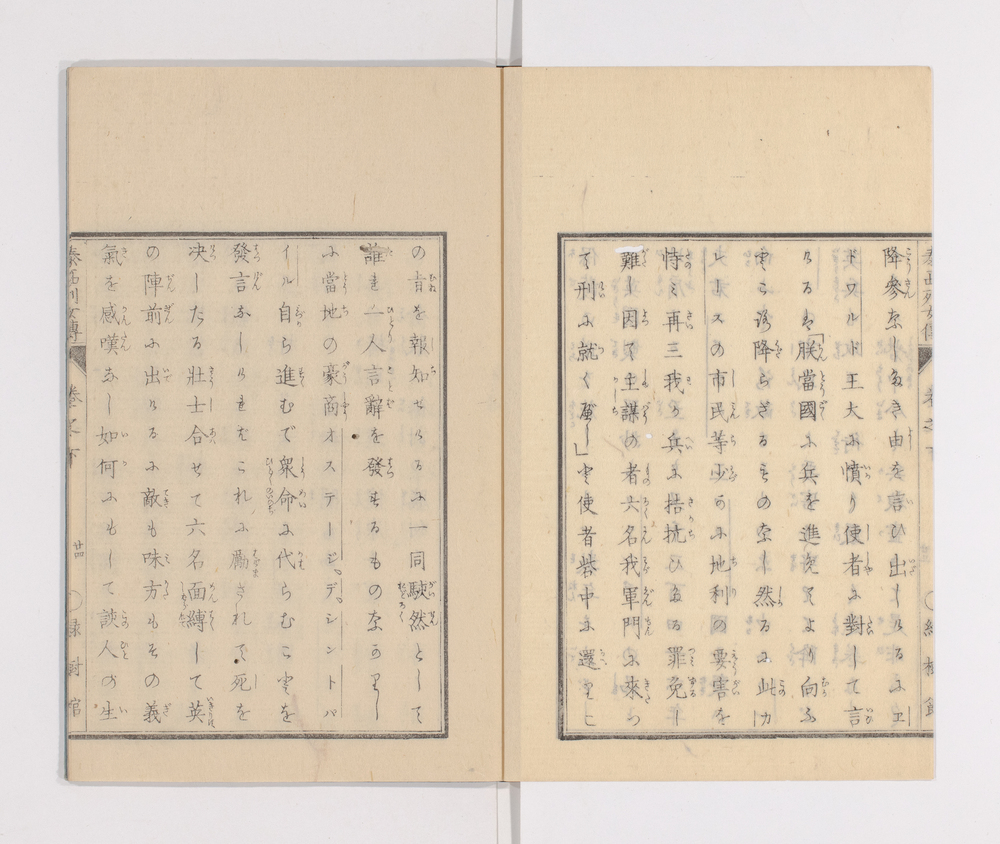 降參なしたき由を言ひ出しけるにエ
ドワルド王大に憤り使者に對して言
けるは「朕當國に兵を進めてより向ふ
所降らざるものなし然るに此カ
レースの市民等少かに地利の要害を
恃み再三我が兵に抗ひたる罪免し
難し因て主謀の者六名我軍門に來ら
て刑に就く可し」と使者砦中に還りこ
の旨を報知せけるに一同駛然として
誰も一人言辭を發するものなかりし
に當地の豪商オステージ、デ、シントパ
イル自ら進むで衆命に代らむことを
發言なしければこれに勵されて死を
决したる壯士合せて六名面縛して英
の陣前に出けるに敵も味方もその義
氣を感嘆なし如何にもして該人の生
泰西列女傳 卷之下 廿四 緑樹館